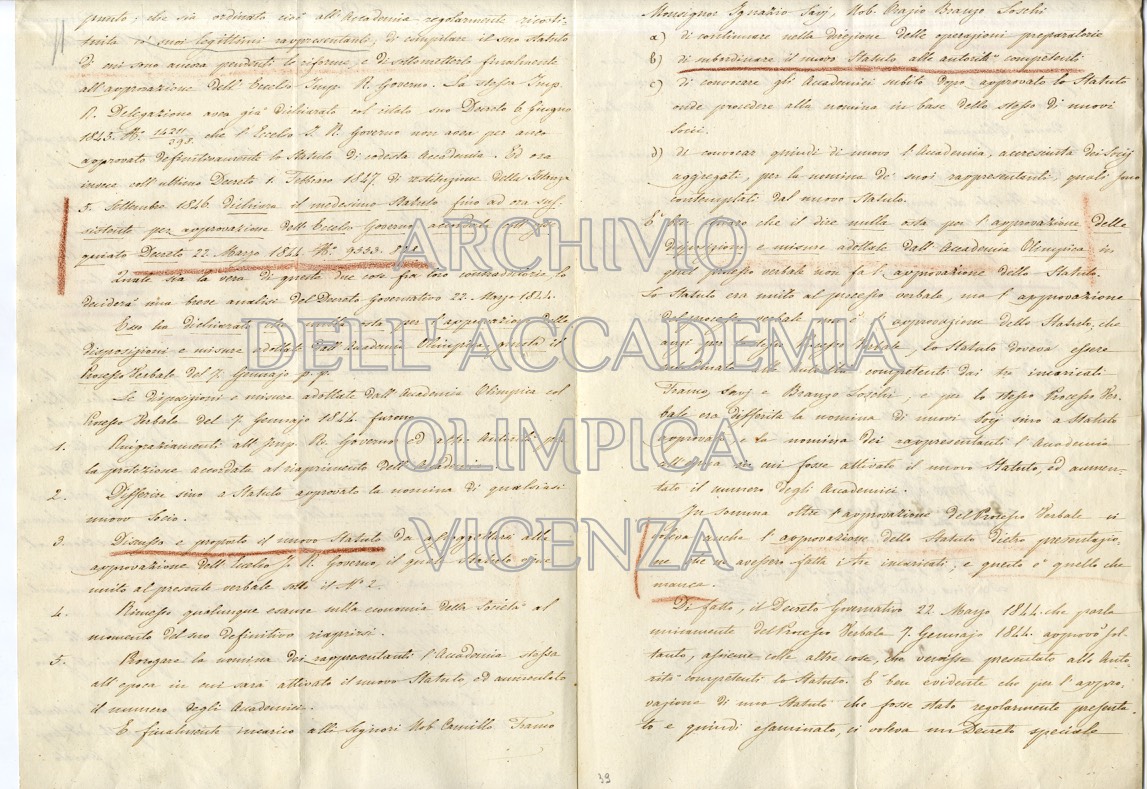 punto, che sia ordinato cioè all'Accademia regolarmente ricosti-
tuita e suoi legittimi rappresentanti, di compilare il suo Statuto
di cui sono ancora pendenti le riforme, e di sottometterlo finalmente
all'approvazione dell'Eccelso Imp. R. Governo. La stessa Imp.
R. Delegazione avea già dichiarato col citato suo Decreto 6 Giugno
1845. N.° 14211/398. che l'Eccelso I. R. Governo non avea per anco
approvato definitivamente lo Statuto di codesta Accademia. Ed ora
invece coll'ultimo Decreto 1. Febbraro 1847. di restituzione della Istanza
5. Settembre 1846. dichiara il medesimo Statuto fino ad ora sus-
sistente per approvazione dell'Eccelso Governo accordata coll'osse-
quiato Decreto 22. Marzo 1844. N.° 9533.
Quale sia la vera di queste due cose fra loro contradditorie lo
deciderà una breve analisi del Decreto Governativo 22. Marzo 1844.
Esso ha dichiarato che nulla osta per l'approvazione delle
disposizioni e misure adottate dall'Accademia Olimpica, giusta il
Processo Verbale del 7. Gennajo p. p.
Le disposizioni e misure adottate dall'Accademia Olimpica col
Processo Verbale del 7. Gennajo 1844. furono
1. Ringraziamenti all'Imp. R. Governo ed altre Autorità per
la protezione accordata al riaprimento dell'Accademia.
2. Differire sino a Statuto approvato la nomina di qualsiasi
nuovo Socio.
3. Discusso e proposto il nuovo Statuto da assoggettarsi alla
approvazione dell'Eccelso I. R. Governo, il quale Statuto sta
unito al presente verbale sotto il N.° 2.
4. Rimesso qualunque esame sulla economia della Società al
momento del suo definitivo riaprirsi.
5. Prorogare la nomina dei rappresentanti l'Accademia stessa
all'epoca in cui sarà attivato il nuovo Statuto, ed aumentato
il numero degli Accademici.
E finalmente incarico alli Signori Nob. Camillo Franco
Monsignor Ignazio Savj, Nob. Orazio Branzo Loschi
a) di continuare nella direzione delle operazioni preparatorie
b) di subordinare il nuovo Statuto alle autorità competenti
c) di convocare gli Accademici subito dopo approvato lo Statuto
onde procedere alla nomina in base dello stesso di nuovi
Socii.
d) di convocar quindi di nuovo l'Accademia, accresciuta dei Socij
aggregati, per la nomina de' suoi rappresentanti quali sono
contemplati dal nuovo Statuto.
E' ben chiaro che il dire nulla osta per l'approvazione delle
disposizioni e misure adottate dall'Accademia Olimpica in
quel processo verbale non fa l'approvazione dello Statuto.
Lo Statuto era unito al processo verbale, ma l'approvazione
del processo verbale non è l'approvazione dello Statuto, che
anzi per lo stesso Processo Verbale, lo Statuto doveva essere
subordinato alle autorità competenti dai tre incaricati
Franco, Savj e Branzo Loschi, e per lo stesso Processo Ver-
bale era differita la nomina di nuovi Socij sino a Statuto
approvato e la nomina dei rappresentanti l'Accademia
all'epoca in cui fosse attivato il nuovo Statuto, ed aumen-
tato il numero degli Accademici.
In somma oltre l'approvazione del Processo Verbale ci
voleva anche l'approvazione dello Statuto dietro presentazio-
ne che ne avessero fatta i tre incaricati, e questo è quello che
manca.
Di fatto, il Decreto Governativo 22. Marzo 1844. che parla
unicamente del Processo Verbale 7. Gennajo 1844. approvò sol-
tanto, assieme colle altre cose, che venisse presentato alle Auto-
rità competenti lo Statuto. E' ben evidente che per l'appro-
vazione di uno Statuto che fosse stato regolarmente presenta-
to e quindi esaminato, ci voleva un Decreto speciale
39
ARCHIVIO
DELL'ACCADEMIA
OLIMPICA
VICENZA